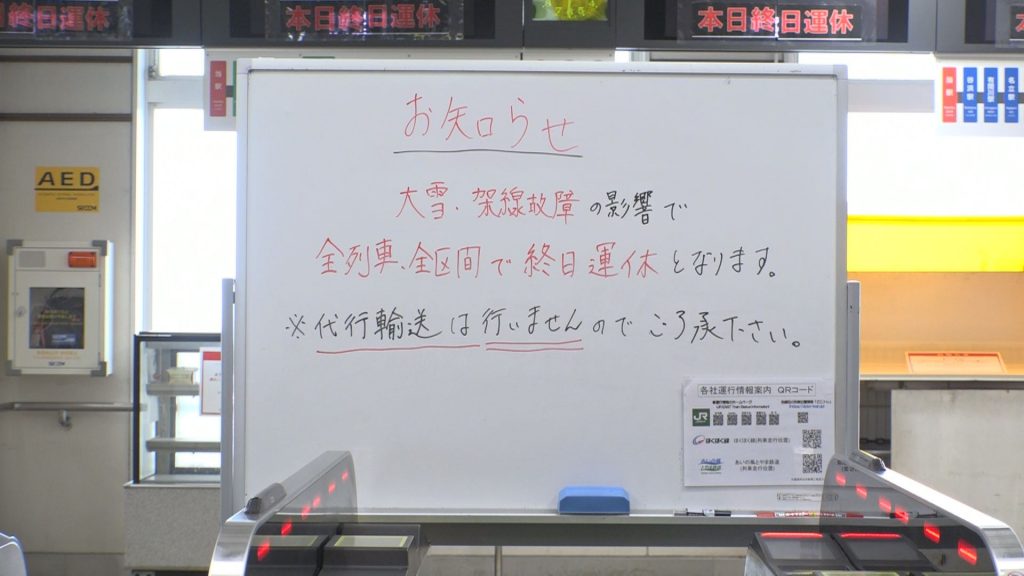 本日終日運休
本日終日運休
お知らせ
大雪、架線故障の影響で
全列車、全区間で終日運休となります。
※代行輸送は行いませんのでご了承下さい。
AED
SECOM
各社運行情報案内 QRコード
JR
ほくほく線 ほくほく線(列車走行位置)
あいの風とやま鉄道
(列車走行位置)